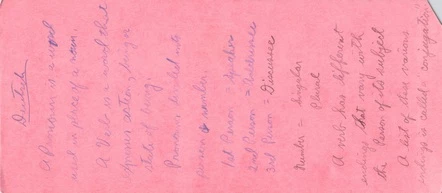 Deutsch
A Pronoun is a word
used in place of a noun.
A Verb is a word that
expresses action, being or
state of being.
Pronouns divided into
person & number
1st Person = Speaker
2nd Person = Audience
3rd Person = Discussee
Number = Singular
Plural
A verb has different
endings that vary with
the Person of its subject
A list of these various
endings is called a "conjugation"